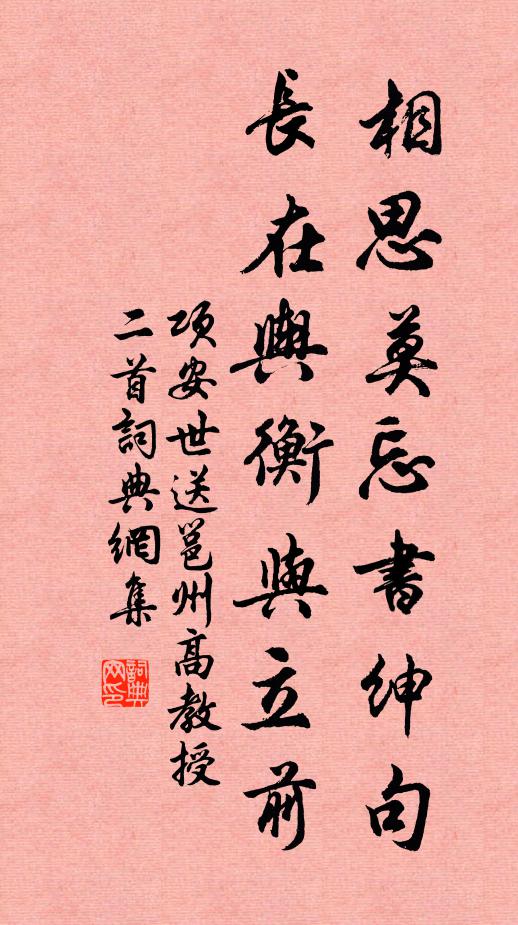 相思莫忘書紳句
長在輿衡與立前
項安世送邕州高教授
二首詞典網集
詞典
网印